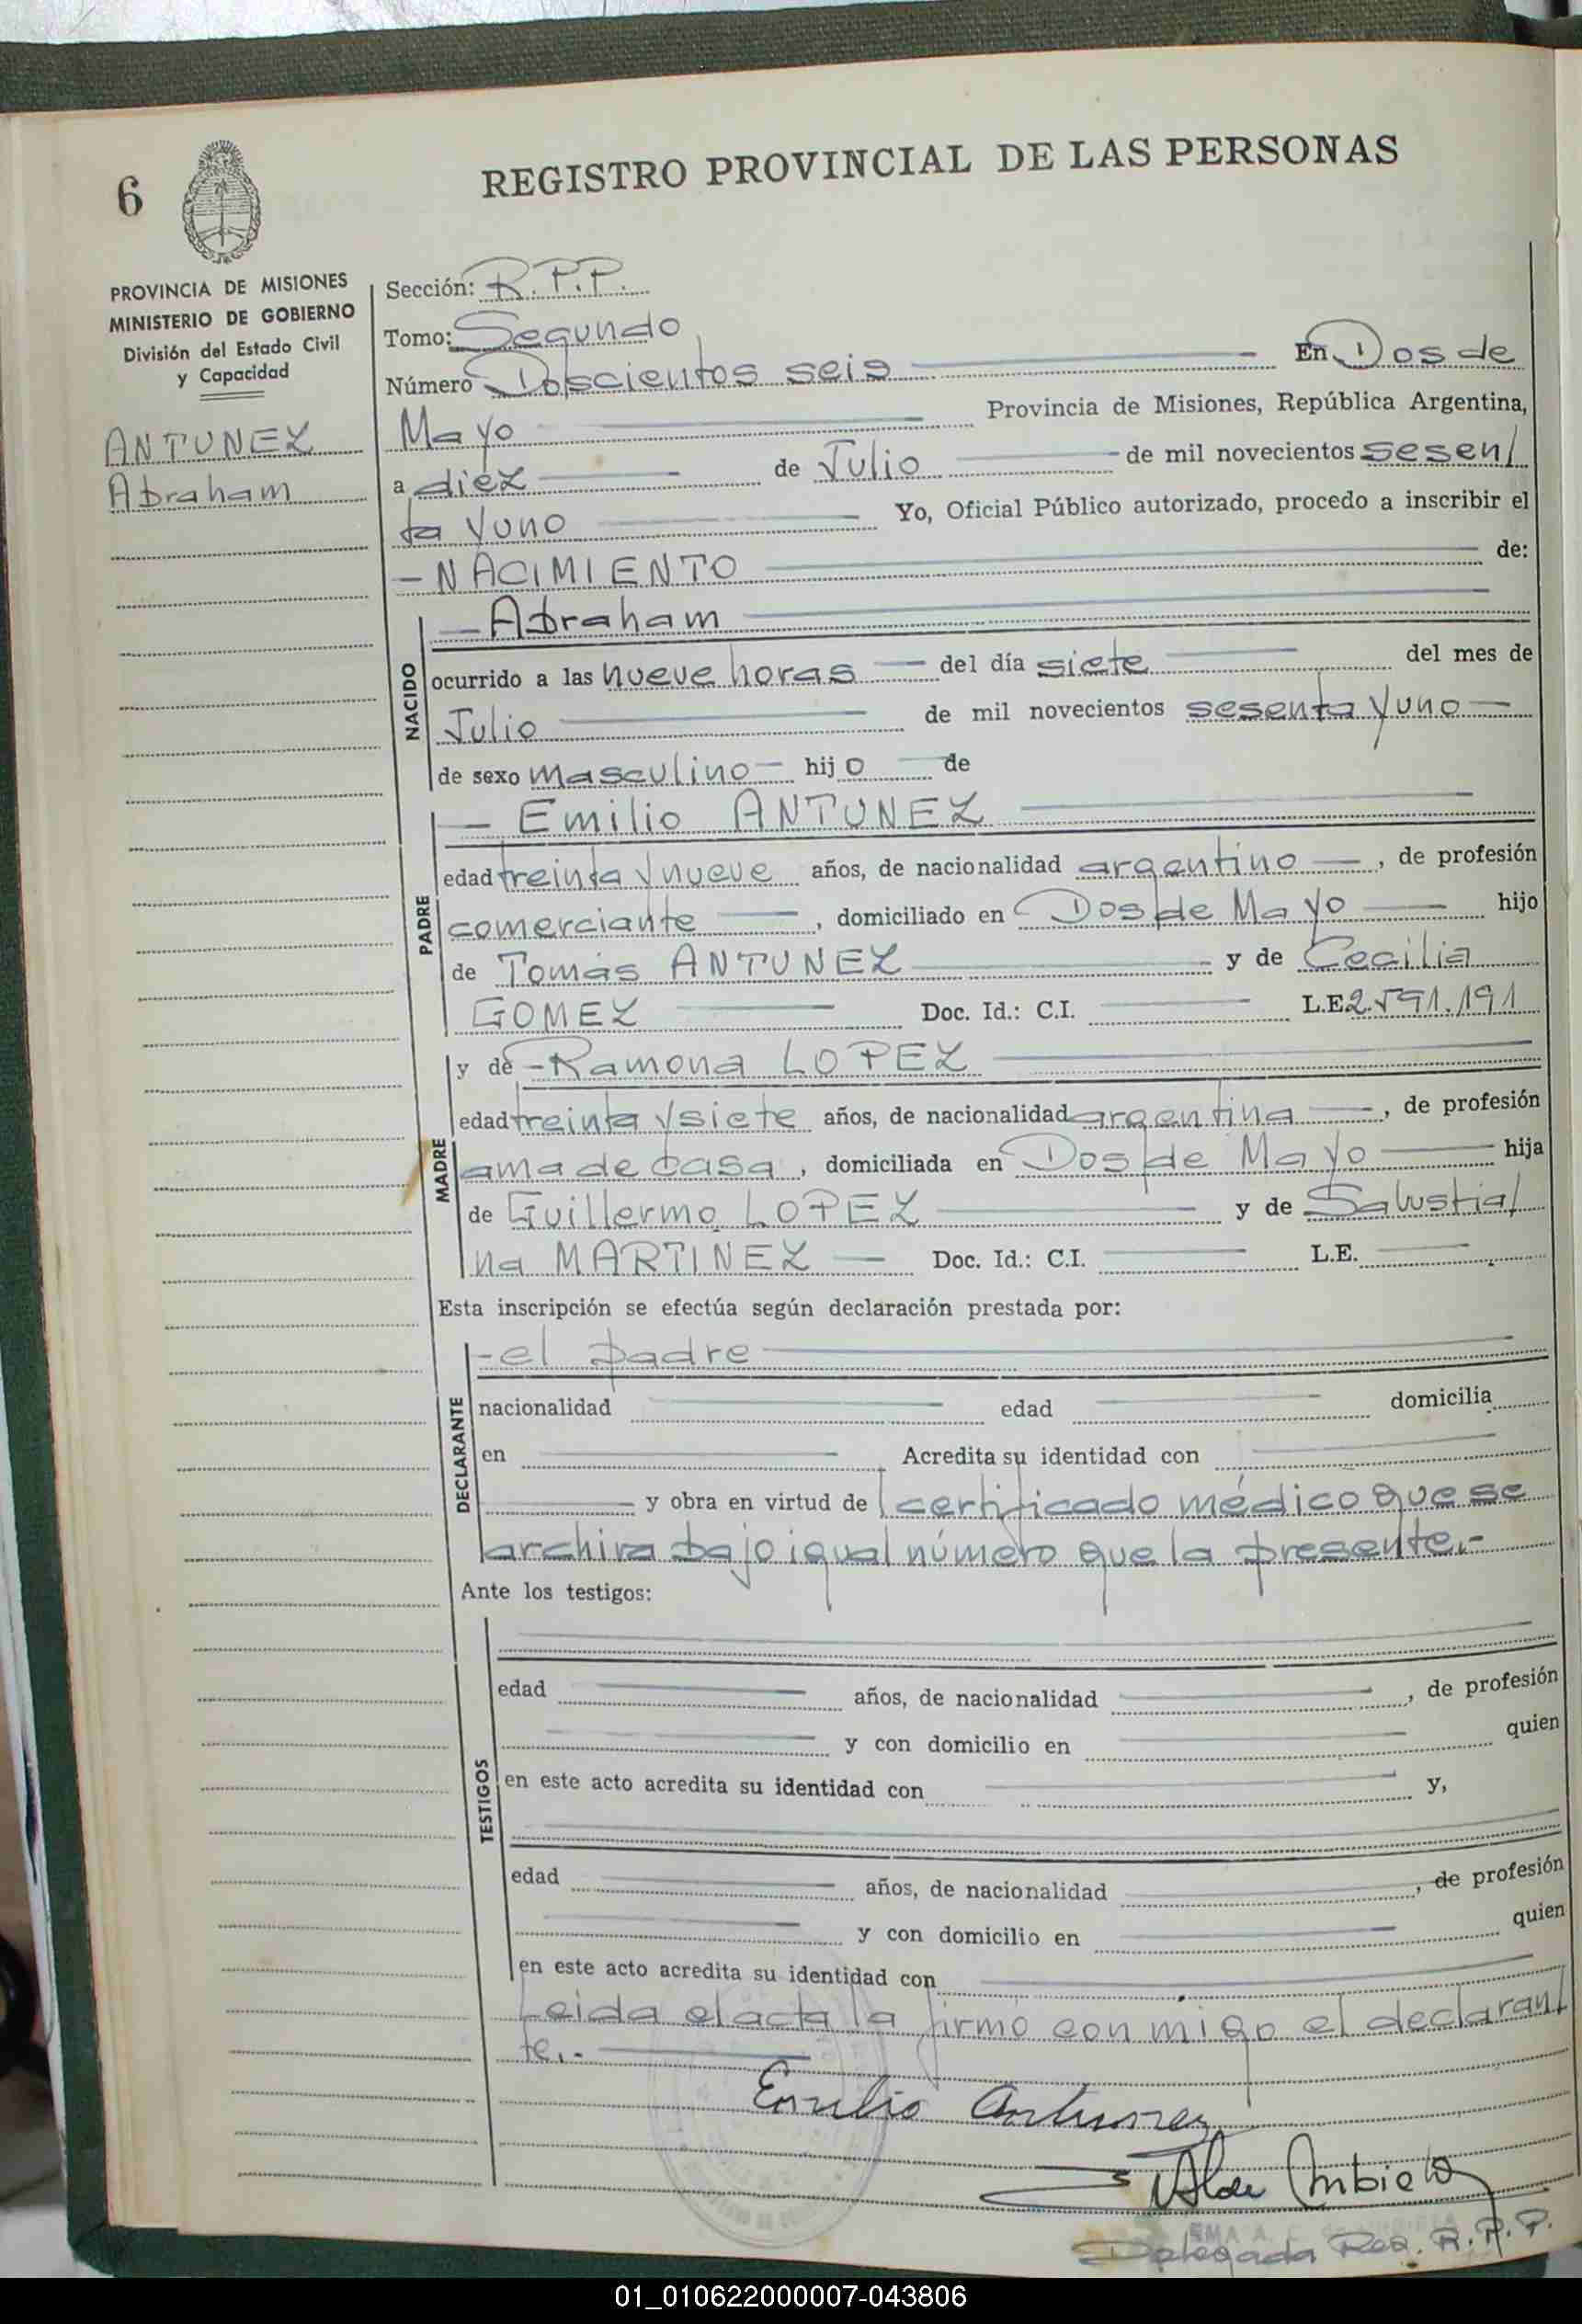 6
REGISTRO PROVINCIAL DE LAS PERSONAS
PROVINCIA DE MISIONES
MINISTERIO DE GOBIERNO
División del Estado Civil
y Capacidad
ANTUNEZ
Abraham
Sección: R.P.P.
Tomo: Segundo
Número Doscientos seis En Dos de
Mayo Provincia de Misiones, República Argentina,
a diez de Julio de mil novecientos sesen/
ta y uno Yo, Oficial Público autorizado, procedo a inscribir el
- NACIMIENTO de:
NACIDO
- Abraham
ocurrido a las nueve horas del día siete del mes de
Julio de mil novecientos sesenta y uno
de sexo masculino hijo de
PADRE
- Emilio ANTUNEZ
edad treinta y nueve años, de nacionalidad argentino, de profesión
comerciante, domiciliado en Dos de Mayo hijo
de Tomás ANTUNEZ y de Cecilia
GOMEZ Doc. Id.: C.I. L.E. 2.591.191
MADRE
y de - Ramona LOPEZ
edad treinta y siete años, de nacionalidad argentina, de profesión
ama de casa, domiciliada en Dos de Mayo hija
de Guillermo LOPEZ y de Salustia/
na MARTINEZ Doc. Id.: C.I. L.E.
Esta inscripción se efectúa según declaración prestada por:
DECLARANTE
- el padre
nacionalidad edad domicilia
en Acredita su identidad con
y obra en virtud de certificado médico que se
archiva bajo igual número que la presente.-
Ante los testigos:
TESTIGOS
edad años, de nacionalidad , de profesión
y con domicilio en quien
en este acto acredita su identidad con y,
edad años, de nacionalidad , de profesión
y con domicilio en quien
en este acto acredita su identidad con
Leida el acta la firmó con migo el declaran/
te.-
Emilio Antunez
Delegada Reg. R.P.P.
01_010622000007-043806